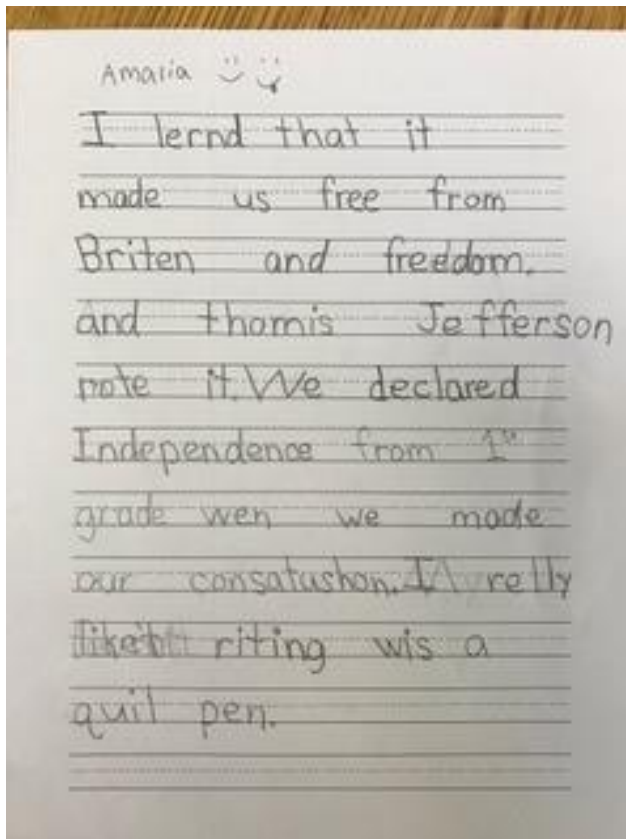 Amaria
I lernd that it
made us free from
Briten and freedom.
and thomis Jefferson
rote it. We declared
Independence from 1st
grade wen we made
our consatushon. I relly
like riting wis a
quil pen.